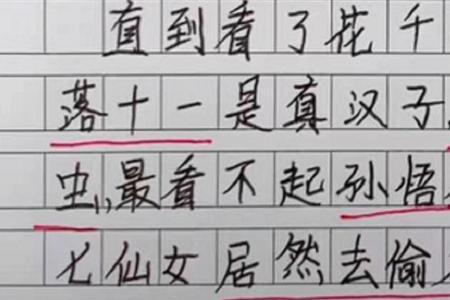 直到看了花千
落十一是真汉子
虫,最看不起孙悟
七仙女居然去偷